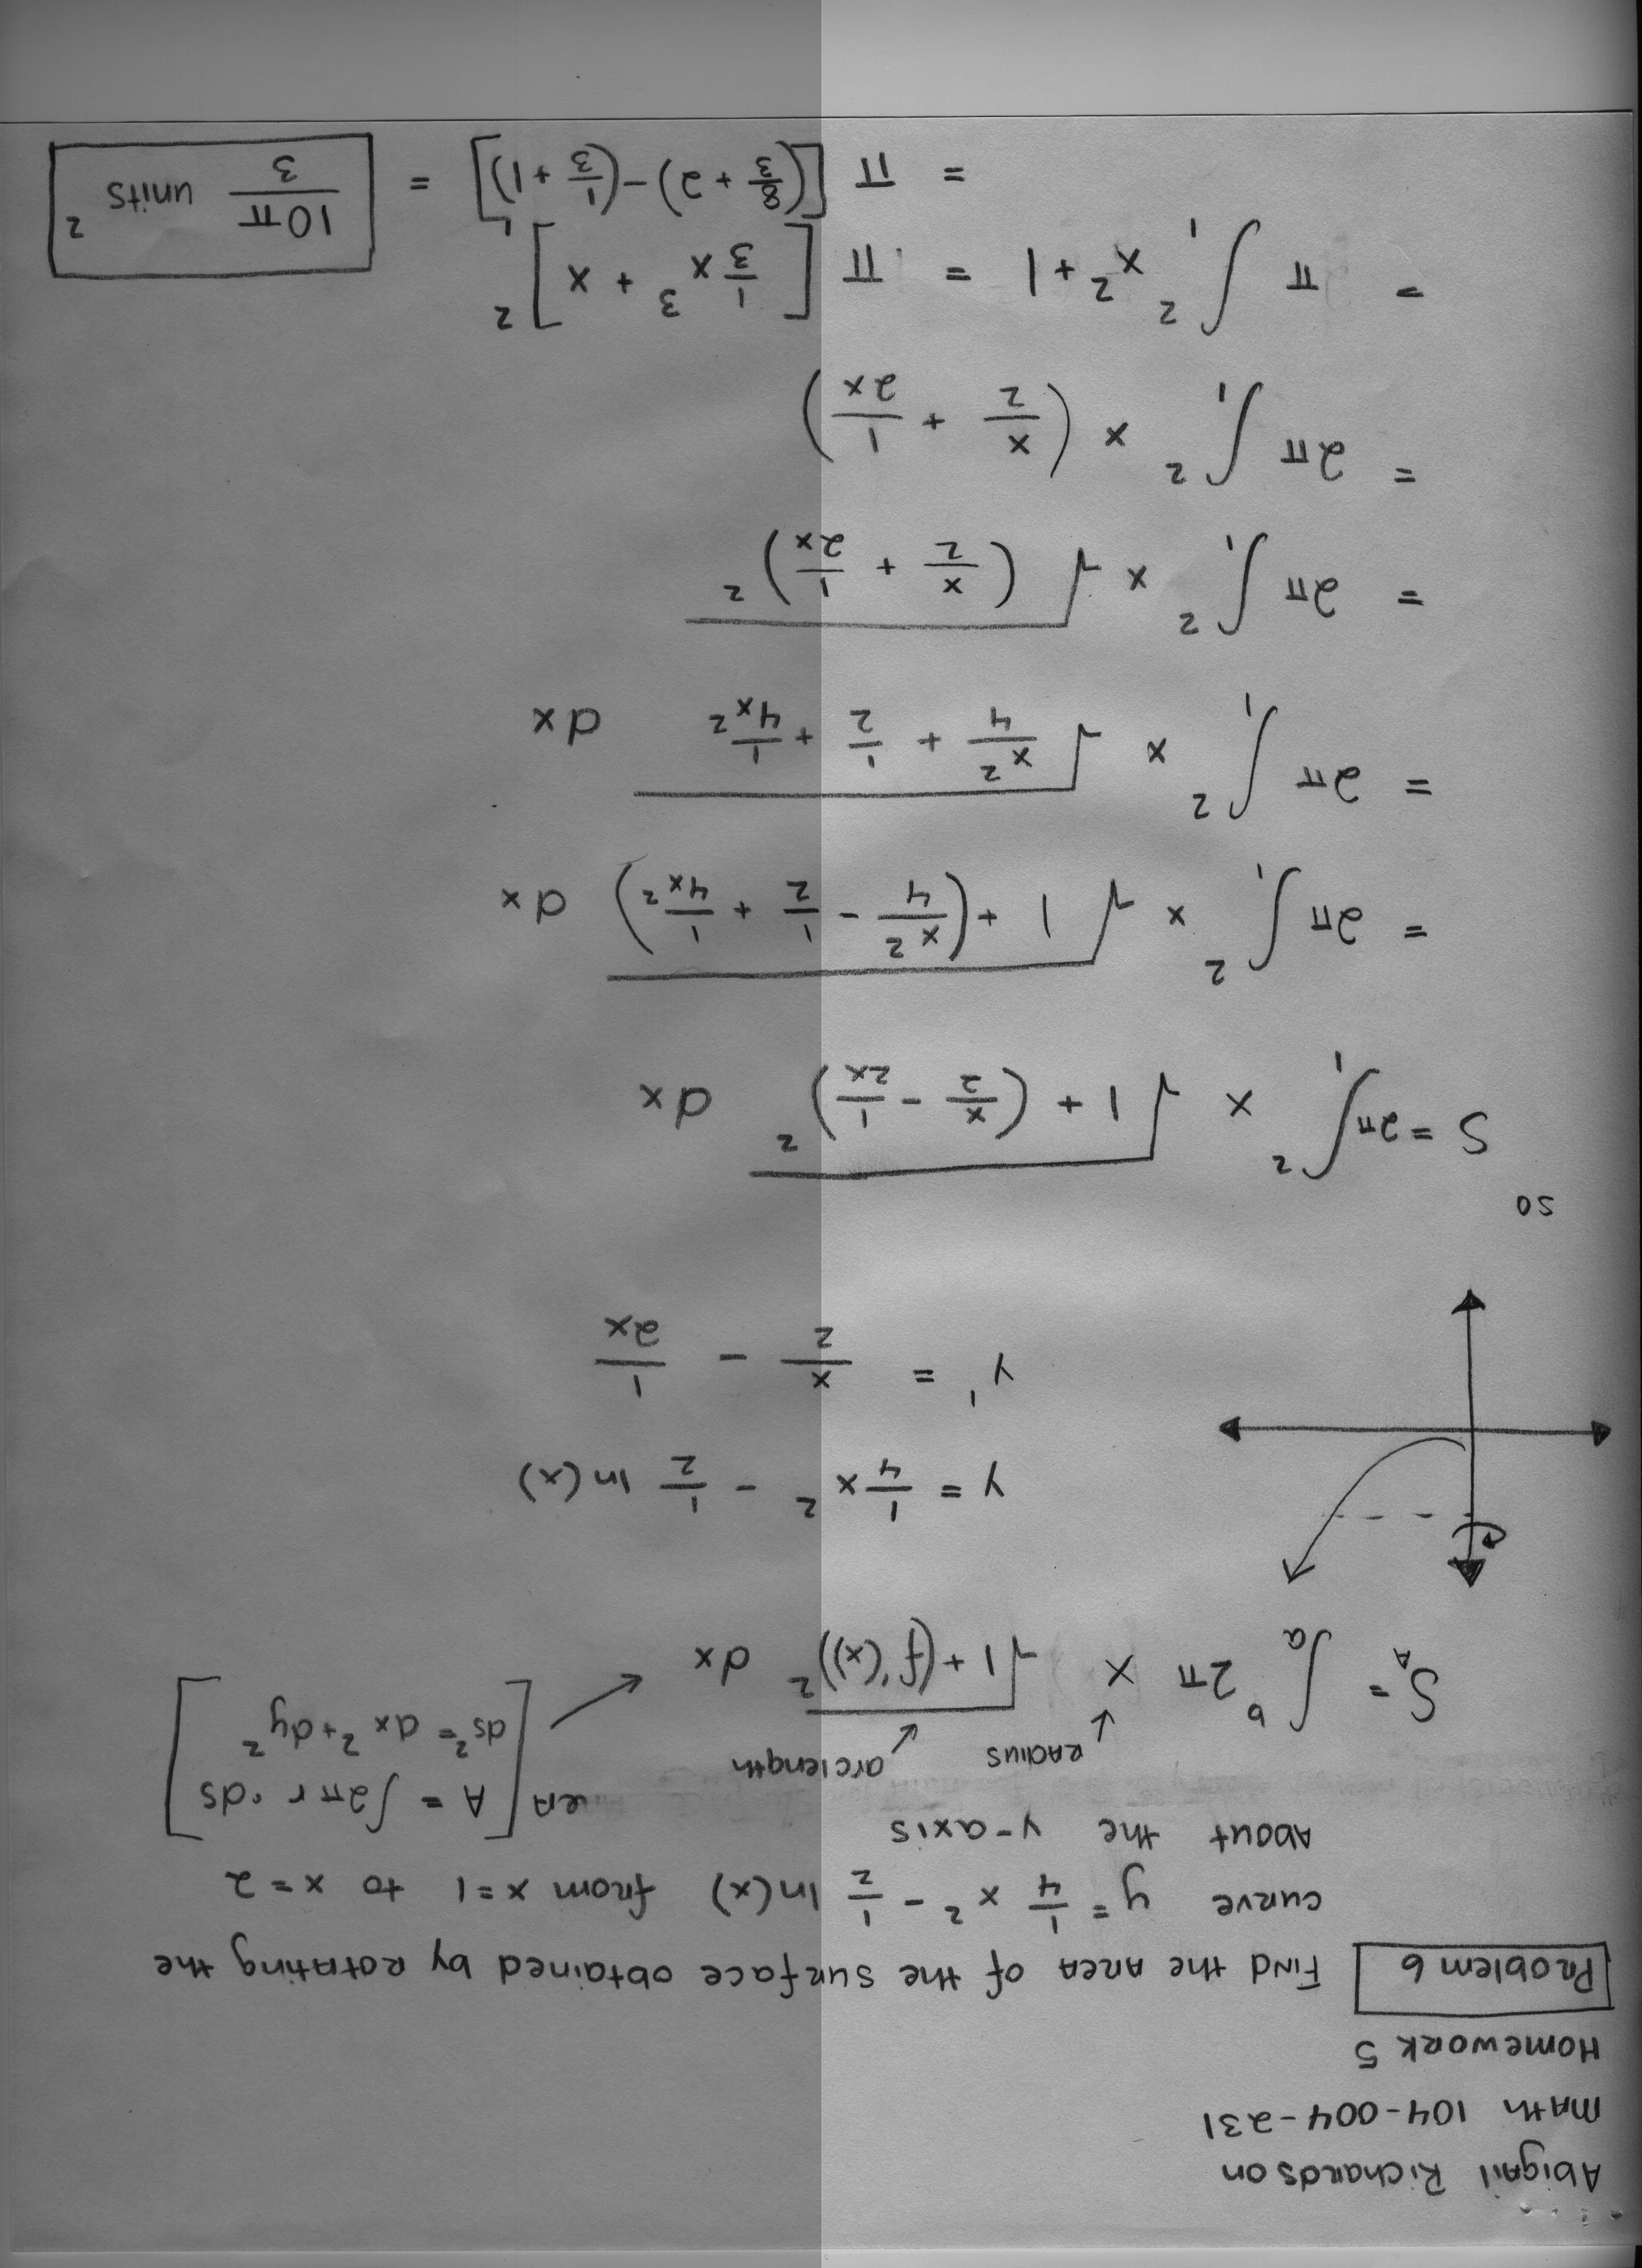 Abigail Richardson
Math 104-004-231
Homework 5
Problem 6 Find the area of the surface obtained by rotating the
curve y = 1/4 x² - 1/2 ln(x) from x=1 to x=2
about the y-axis
radius arclength
S_A = ∫_a^b 2π x √(1+(f'(x))²) dx
[A = ∫2πr·ds
ds² = dx² + dy²]
y = 1/4 x² - 1/2 ln(x)
y' = x/2 - 1/2x
so
S = 2π ∫_1^2 x √(1 + (x/2 - 1/2x)²) dx
= 2π ∫_1^2 x √(1 + (x²/4 - 1/2 + 1/4x²)) dx
= 2π ∫_1^2 x √(x²/4 + 1/2 + 1/4x²) dx
= 2π ∫_1^2 x √((x/2 + 1/2x)²)
= 2π ∫_1^2 x (x/2 + 1/2x)
= π ∫_1^2 x² + 1 = π [1/3 x³ + x]_1^2
= π [(8/3 + 2) - (1/3 + 1)] = 10π/3 units²